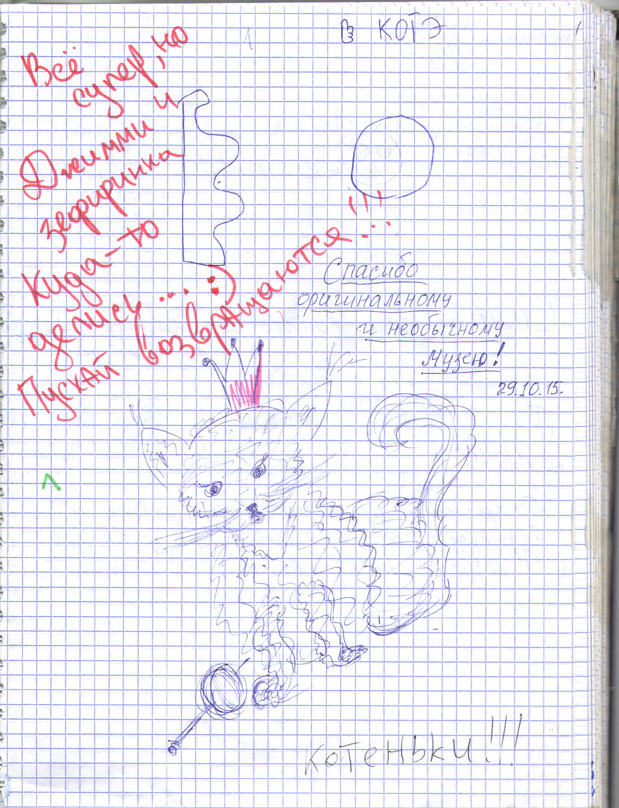 КОТЭ
Всё
супер, но
Джимми и
Зефиринка
куда-то
делись... :)
Пускай возвращаются!!!
Спасибо
оригинальному
и необычному
Музею!
29.10.15.
котеньки!!!